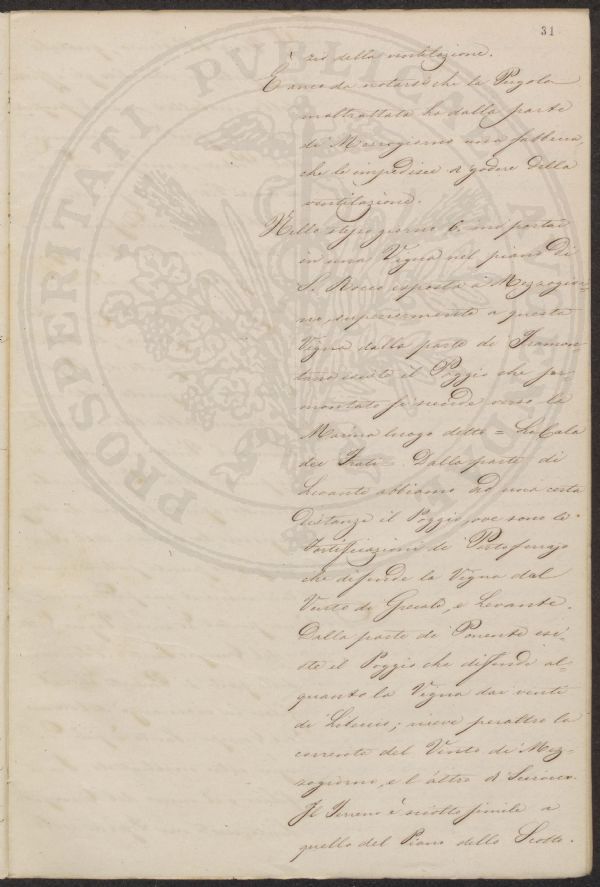 31
zio della ventilazione.
È anco da notarsi che la Pergola
maltrattata ha dalla parte
di Mezzogiorno una fabbrica,
che le impedisce di godere della
ventilazione.
Nello stesso giorno 6. mi portai
in una Vigna nel piano di
S. Rocco esposta a Mezzogior=
no, superiormente a questa
Vigna dalla parte di Tramon=
tana esiste il Poggio che sor=
montato si scende verso la
Marina luogo detto = La Cala
dei Frati =. Dalla parte di
Levante abbiamo ad una certa
distanza il Poggio, ove sono le
Fortificazioni di Portoferrajo
che difende la Vigna dal
Vento di Grecale, e Levante.
Dalla parte di Ponente esi=
ste il Poggio che difende al=
quanto la Vigna dai venti
di Libeccio; riceve peraltro la
corrente del Vento di Mez=
zogiorno, e l'altro di Scirocco.
Il Terreno è sciolto simile a
quello del Piano dello Scotto.
PROSPERITATI PUBLICAE AUGENDAE